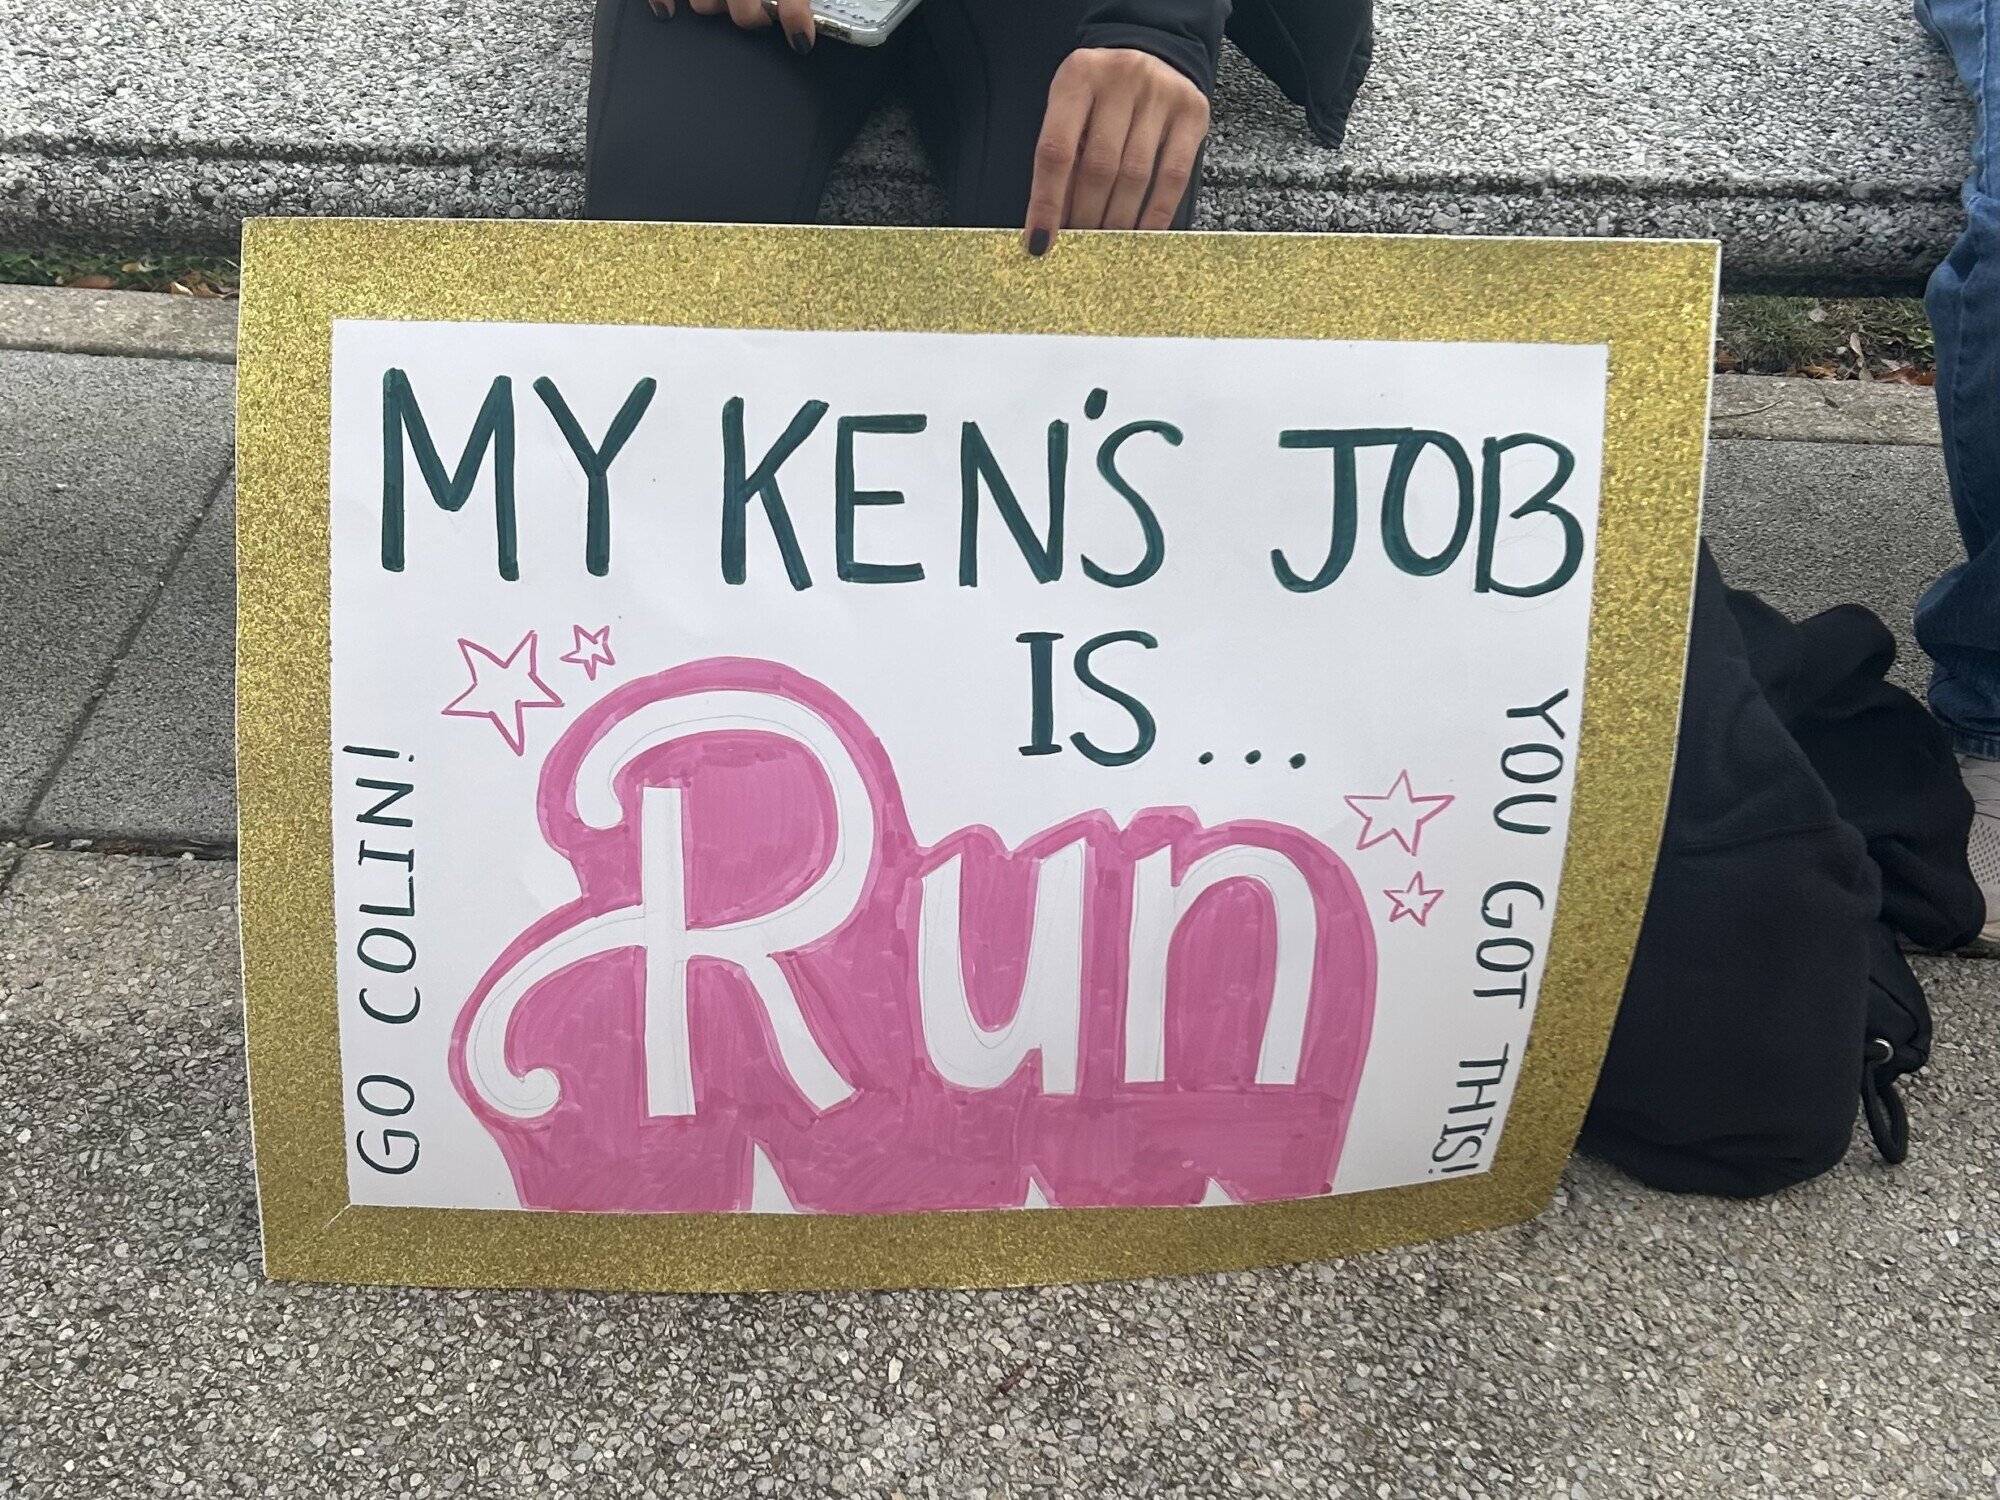 MY KEN'S JOB
IS...
Run
GO COLIN!
YOU GOT THIS!